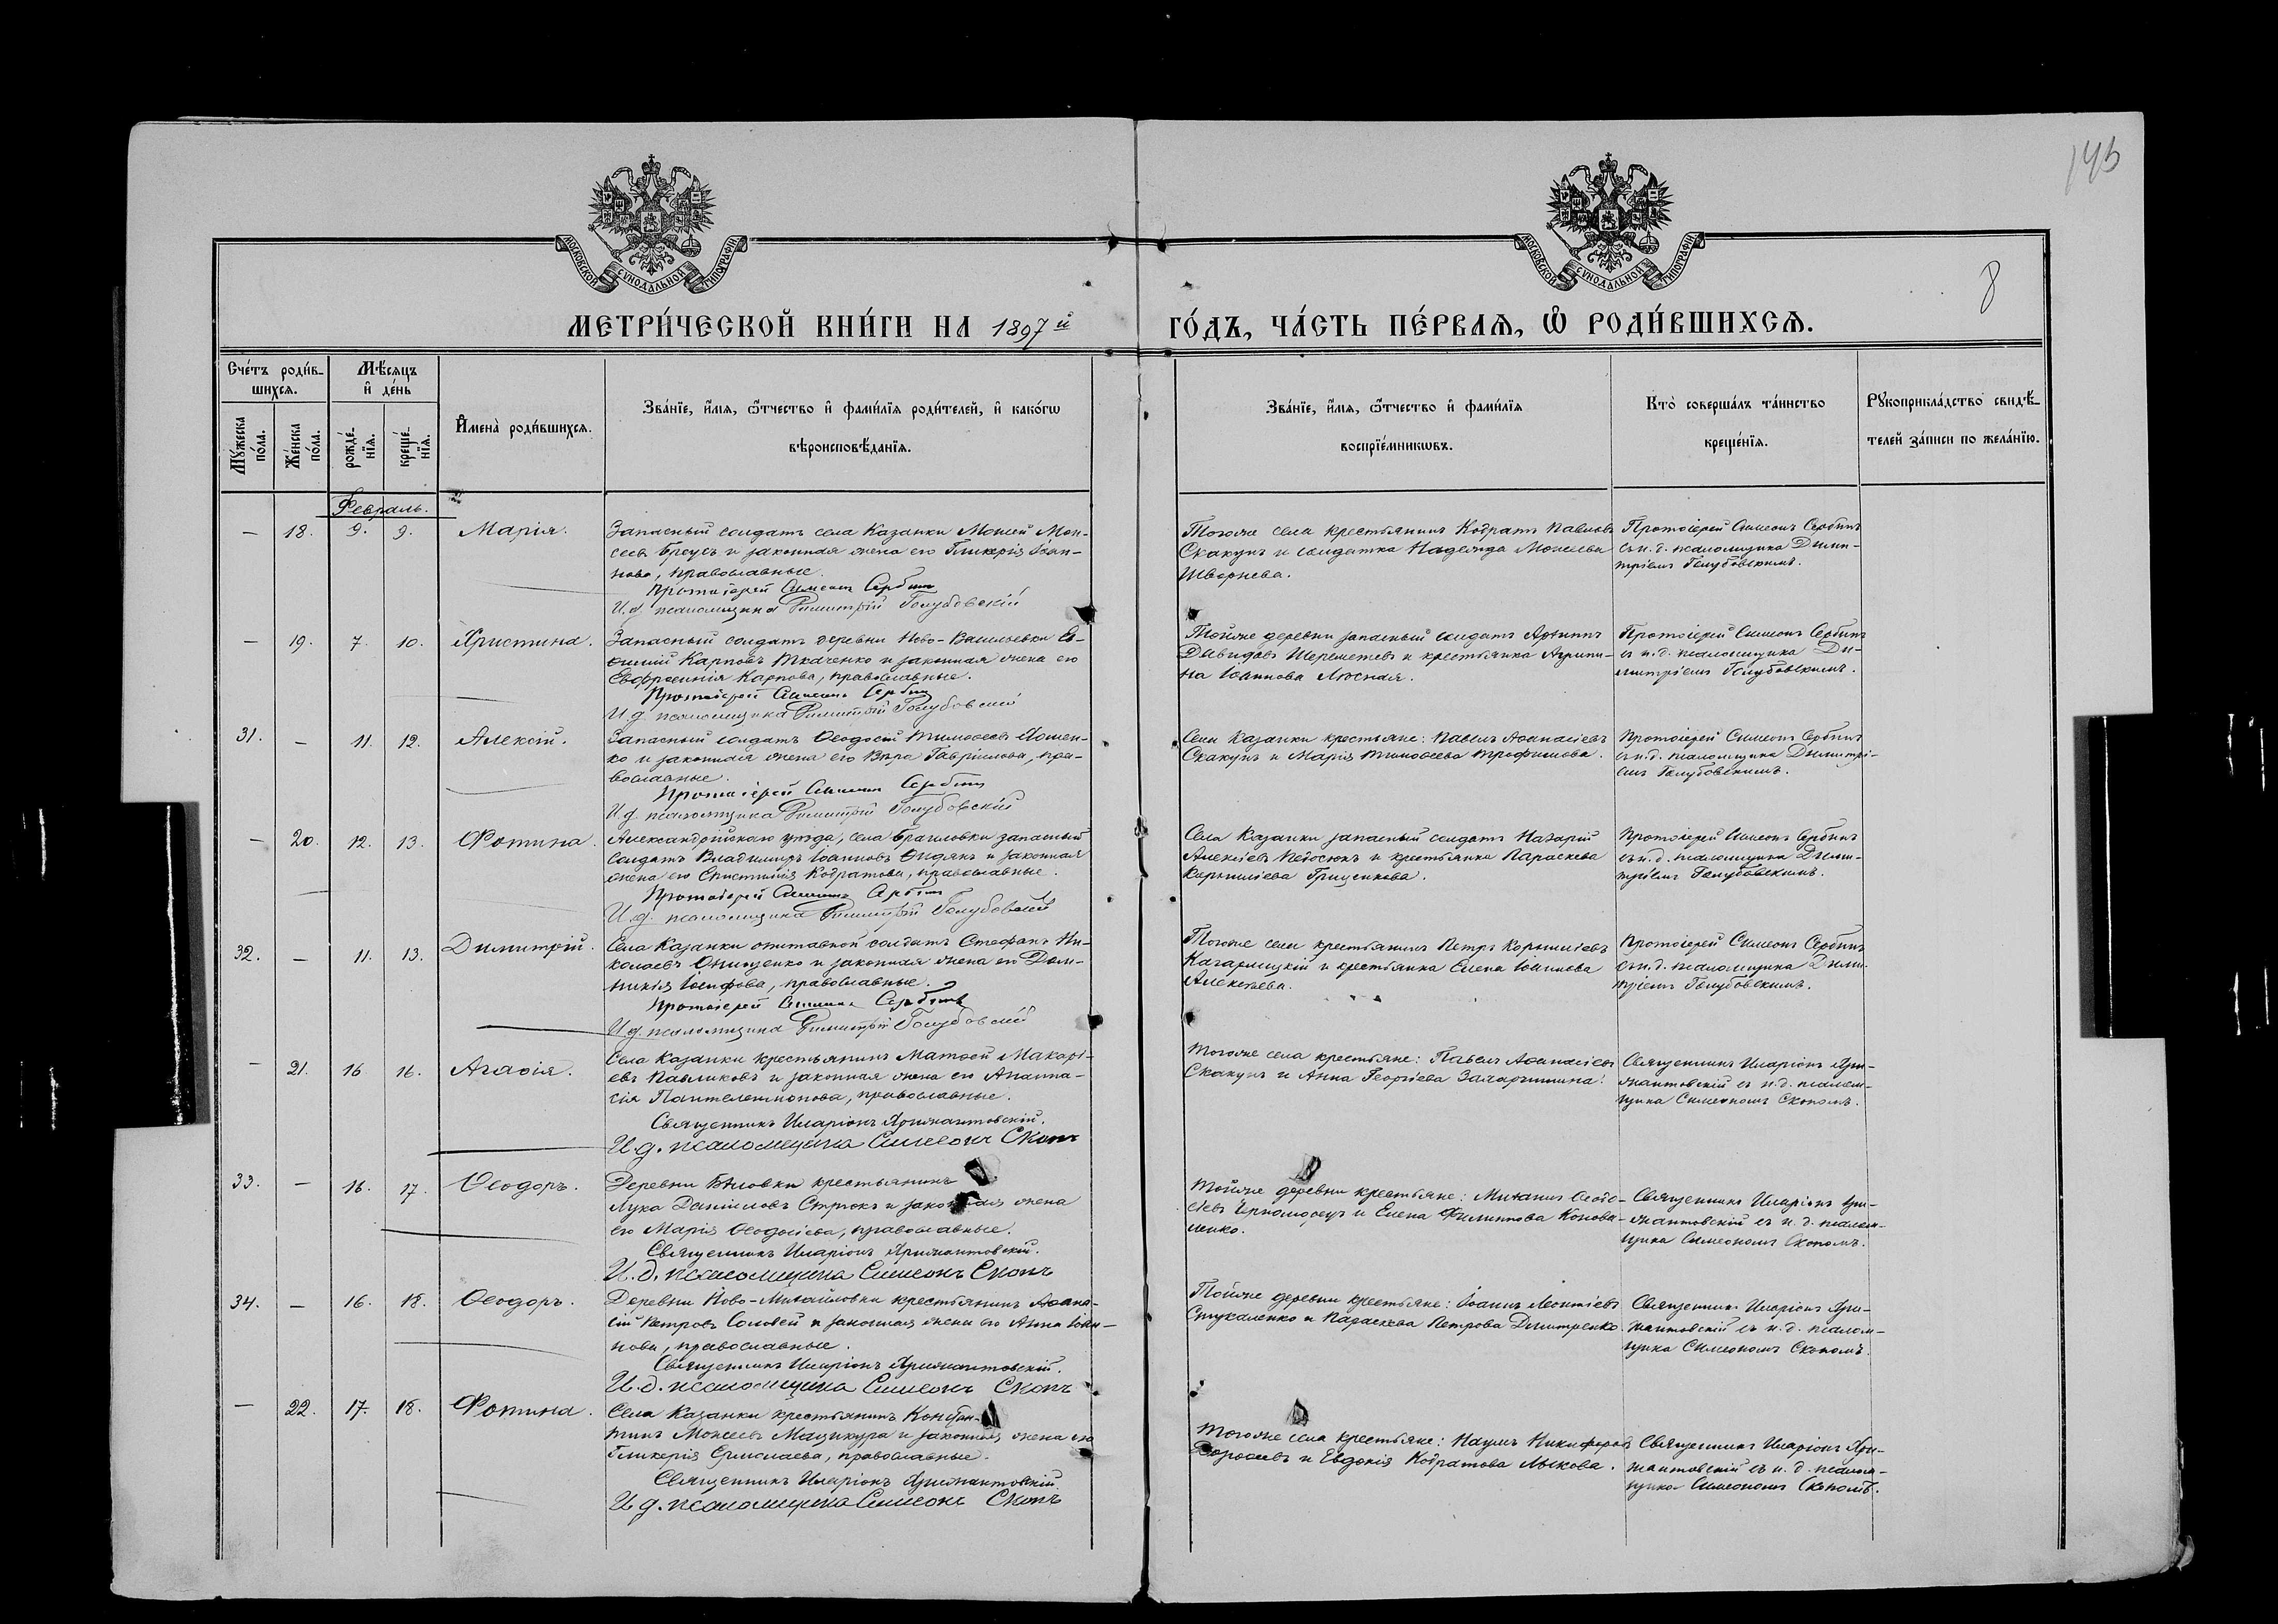 145
8
МОСКОВСКОЙ СѴНОДАЛЬНОЙ ТИПОГРАФІИ
МОСКОВСКОЙ СѴНОДАЛЬНОЙ ТИПОГРАФІИ
МЕТРИ́ЧЕСКОЙ КНИ́ГИ НА 1897й
ГО́ДЪ, ЧА́СТЬ ПЕ́РВАѦ, Ѡ҆ РОДИ́ВШИХСѦ.
Сче́тъ роди́в-
шихсѧ.
Мѣ́сѧцъ
и҆ де́нь
Мꙋ́жеска
по́ла.
Же́нска
по́ла.
рожде́-
нїѧ.
креще́-
нїѧ.
И҆мена̀ роди́вшихсѧ.
Зва́нїе, и҆́мѧ, ѻ҆́тчество и҆ фами́лїѧ роди́телей, и҆ како́гѡ
вѣроисповѣ́данїѧ.
Зва́нїе, и҆́мѧ, ѻ҆́тчество и҆ фами́лїѧ
воспрїе́мникѡвъ.
Кто̀ соверша́лъ та́инство
креще́нїѧ.
Рꙋкоприкла́дство свидѣ́-
телей за́писи по жела́нїю.
Февраль.
— 18. 9. 9. Марія.
Запасный солдатъ села Казанки Моисей Мои-
сеевъ Броусъ и законная жена его Гликерія Іоан-
нова, православные.
Протоіерей Симеонъ Сербинъ
И.д. псаломщика Димитрій Голубовскій
Тогоже села крестьянинъ Кодратъ Павловъ
Скакунъ и солдатка Надежда Моисеева
Шворнева.
Протоіерей Симеонъ Сербинъ
съ и. д. псаломщика Дими-
тріемъ Голубовскимъ.
— 19. 7. 10. Христина.
Запасный солдатъ деревни Ново-Васильевки Ев-
Карповъ Ткаченко и законная жена его
Евфросинія Карпова, православные.
Протоіерей Симеонъ Сербинъ
И.д. псаломщика Димитрій Голубовскій
Тойже деревни запасный солдатъ Архипъ
Давидовъ Шереметевъ и крестьянка Агрипи-
на Іоаннова
Протоіерей Симеонъ Сербинъ
съ и.д. псаломщика Ди-
митріемъ Голубовскимъ.
31. — 11. 12. Алексій.
Запасный солдатъ Ѳеодосій Тимоѳеевъ Хомен-
ко и законная жена его Вѣра Гавріилова, пра-
вославные.
Протоіерей Симеонъ Сербинъ
И.д. псаломщика Димитрій Голубовскій
Села Казанки крестьяне: Павелъ Аѳанасіевъ
Скакунъ и Марія Тимоѳеева Трофимова.
Протоіерей Симеонъ Сербинъ
съ и.д. псаломщика Димитрі-
емъ Голубовскимъ.
— 20. 12. 13. Фотина.
Александрійскаго уѣзда, села Браиловки запасный
солдатъ Владимиръ Іоанновъ и законная
жена его Кодратова, православные.
Протоіерей Симеонъ Сербинъ
И.д. псаломщика Димитрій Голубовскій
Села Казанки запасный солдатъ Назарій
Алексіевъ и крестьянка Параскева
Корниліева Гриценкова.
Протоіерей Симеонъ Сербинъ
съ и.д. псаломщика Дими-
тріемъ Голубовскимъ.
32. — 11. 13. Димитрій.
Села Казанки отставной солдатъ Стефанъ Ни-
колаевъ Онищенко и законная жена его Дом-
никія Іосифова, православные.
Протоіерей Симеонъ Сербинъ
И.д. псаломщика Димитрій Голубовскій
Тогоже села крестьянинъ Петръ Корниліевъ
Кагарлицкій и крестьянка Елена Іоаннова
Алексѣева.
Протоіерей Симеонъ Сербинъ
съ и.д. псаломщика Дими-
тріемъ Голубовскимъ.
— 21. 16. 16. Агаѳія.
Села Казанки крестьянинъ Матѳей Макарі-
евъ Павликовъ и законная жена его Анаста-
сія Пантелеимонова, православные.
Священникъ Иларіонъ Хржантовскій.
И.д. псаломщика Симеонъ Скопъ
Тогоже села крестьяне: Павелъ Аѳанасіевъ
Скакунъ и Анна Георгіева
Священникъ Иларіонъ Хри-
жантовскій съ и.д. псалом-
щика Симеономъ Скопомъ.
33. — 16. 17. Ѳеодоръ.
Деревни Бѣловки крестьянинъ
Лука Даніиловъ Стрюкъ и законная жена
его Марія Ѳеодосіева, православные.
Священникъ Иларіонъ Хржантовскій.
И.д. псаломщика Симеонъ Скопъ
Тойже деревни крестьяне: Михаилъ Ѳеодо-
сіевъ Черноморецъ и Елена Филиппова Конова-
ленко.
Священникъ Иларіонъ Хри-
жантовскій съ и.д. псалом-
щика Симеономъ Скопомъ.
34. — 16. 18. Ѳеодоръ.
Деревни Ново-Михайловки крестьянинъ Аѳана-
сій Петровъ Соловей и законная жена его Анна Іоан-
нова, православные.
Священникъ Иларіонъ Хржантовскій.
И.д. псаломщика Симеонъ Скопъ
Тойже деревни крестьяне: Іоаннъ Леонтіевъ
Стукаленко и Параскева Петрова Дмитренко.
Священникъ Иларіонъ Хри-
жантовскій съ и.д. псалом-
щика Симеономъ Скопомъ.
— 22. 17. 18. Фотина.
Села Казанки крестьянинъ Констан-
тинъ Моисеевъ Мацикура и законная жена его
Гликерія Ермолаева, православные.
Священникъ Иларіонъ Хржантовскій
И.д. псаломщика Симеонъ Скопъ
Тогоже села крестьяне: Наумъ Никифоровъ
и Евдокія Кодратова Лыкова.
Священникъ Иларіонъ Хри-
жантовскій съ и.д. псалом-
щика Симеономъ Скопомъ.